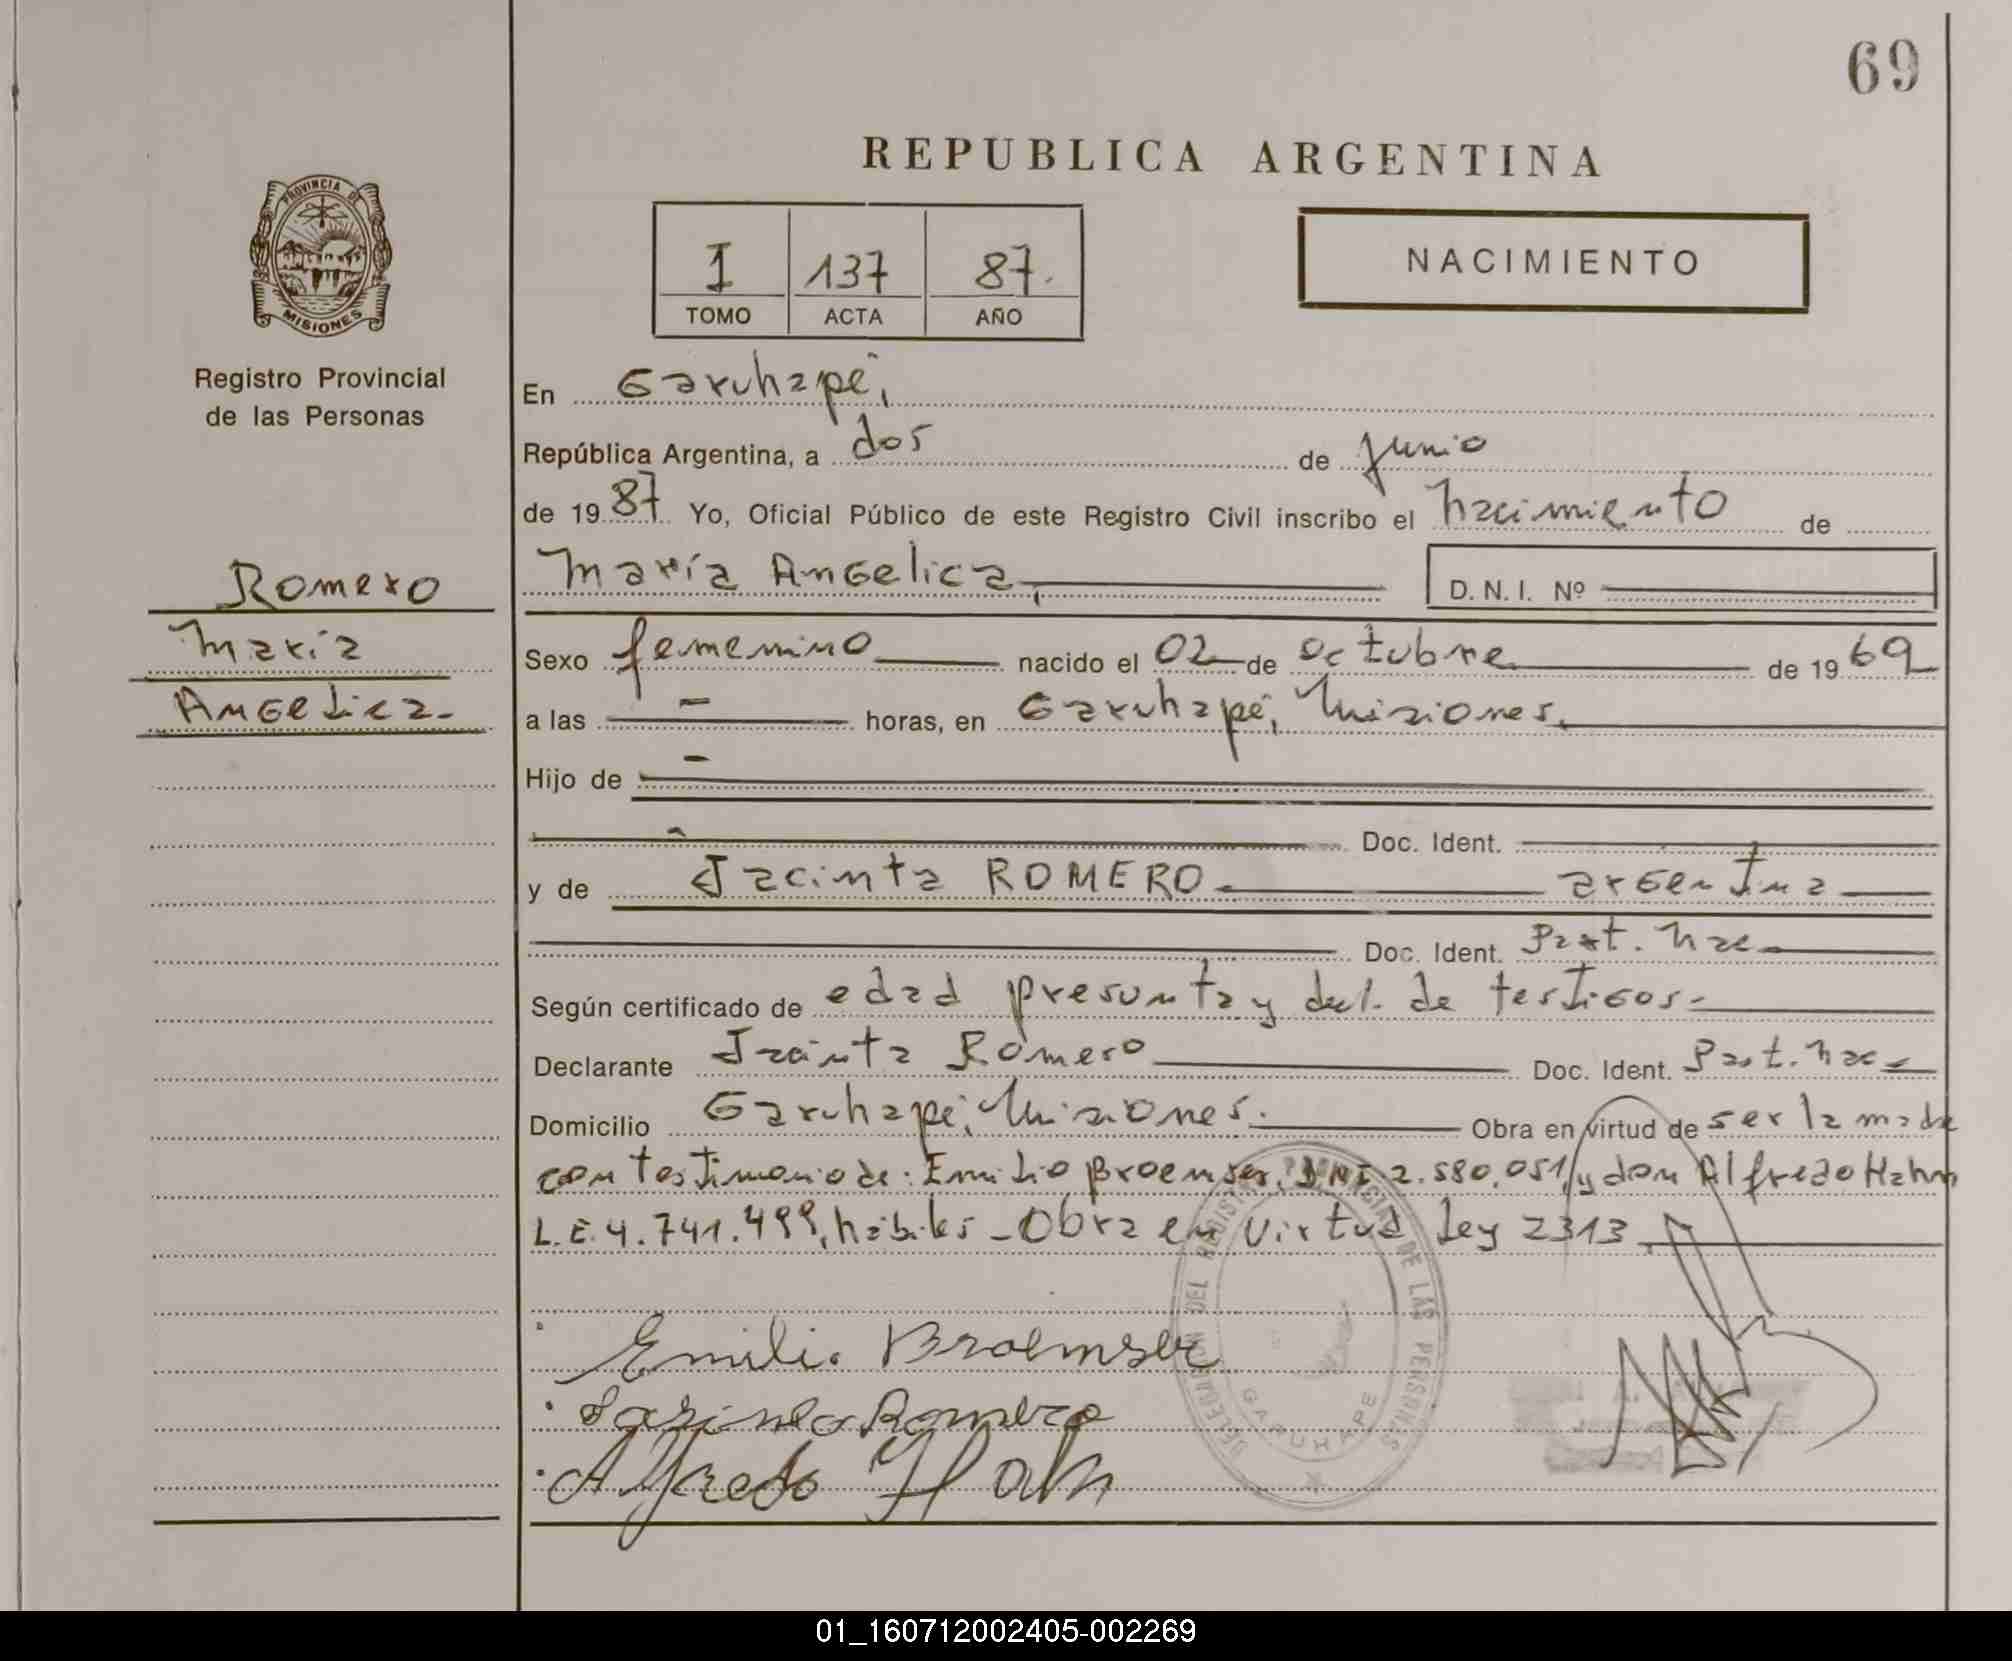 69
REPUBLICA ARGENTINA
PROVINCIA DE
MISIONES
Registro Provincial
de las Personas
I 137 87.
TOMO ACTA AÑO
NACIMIENTO
En Garuhapé,
República Argentina, a dos de junio
de 19 87 Yo, Oficial Público de este Registro Civil inscribo el nacimiento de
María Angelica, D. N. I. Nº
Romero
María
Angelica.
Sexo femenino nacido el 02 de octubre de 19 69
a las - horas, en Garuhapé, Misiones.
Hijo de -
- Doc. Ident.
y de Jacinta ROMERO argentina
Doc. Ident. Part. nac.
Según certificado de edad presunta y decl. de testigos.
Declarante Jacinta Romero Doc. Ident. Part. nac.
Domicilio Garuhapé, Misiones. Obra en virtud de ser la madre
con testimonio de: Emilio Broemser, DNI 2.580.051, y don Alfredo Hahn
L.E. 4.741.499, hábiles - Obra en virtud Ley 2313.
Emilio Broemser
Romero
Alfredo Hahn
DELEGACION DEL REGISTRO PROVINCIAL DE LAS PERSONAS
GARUHAPE
01_160712002405-002269